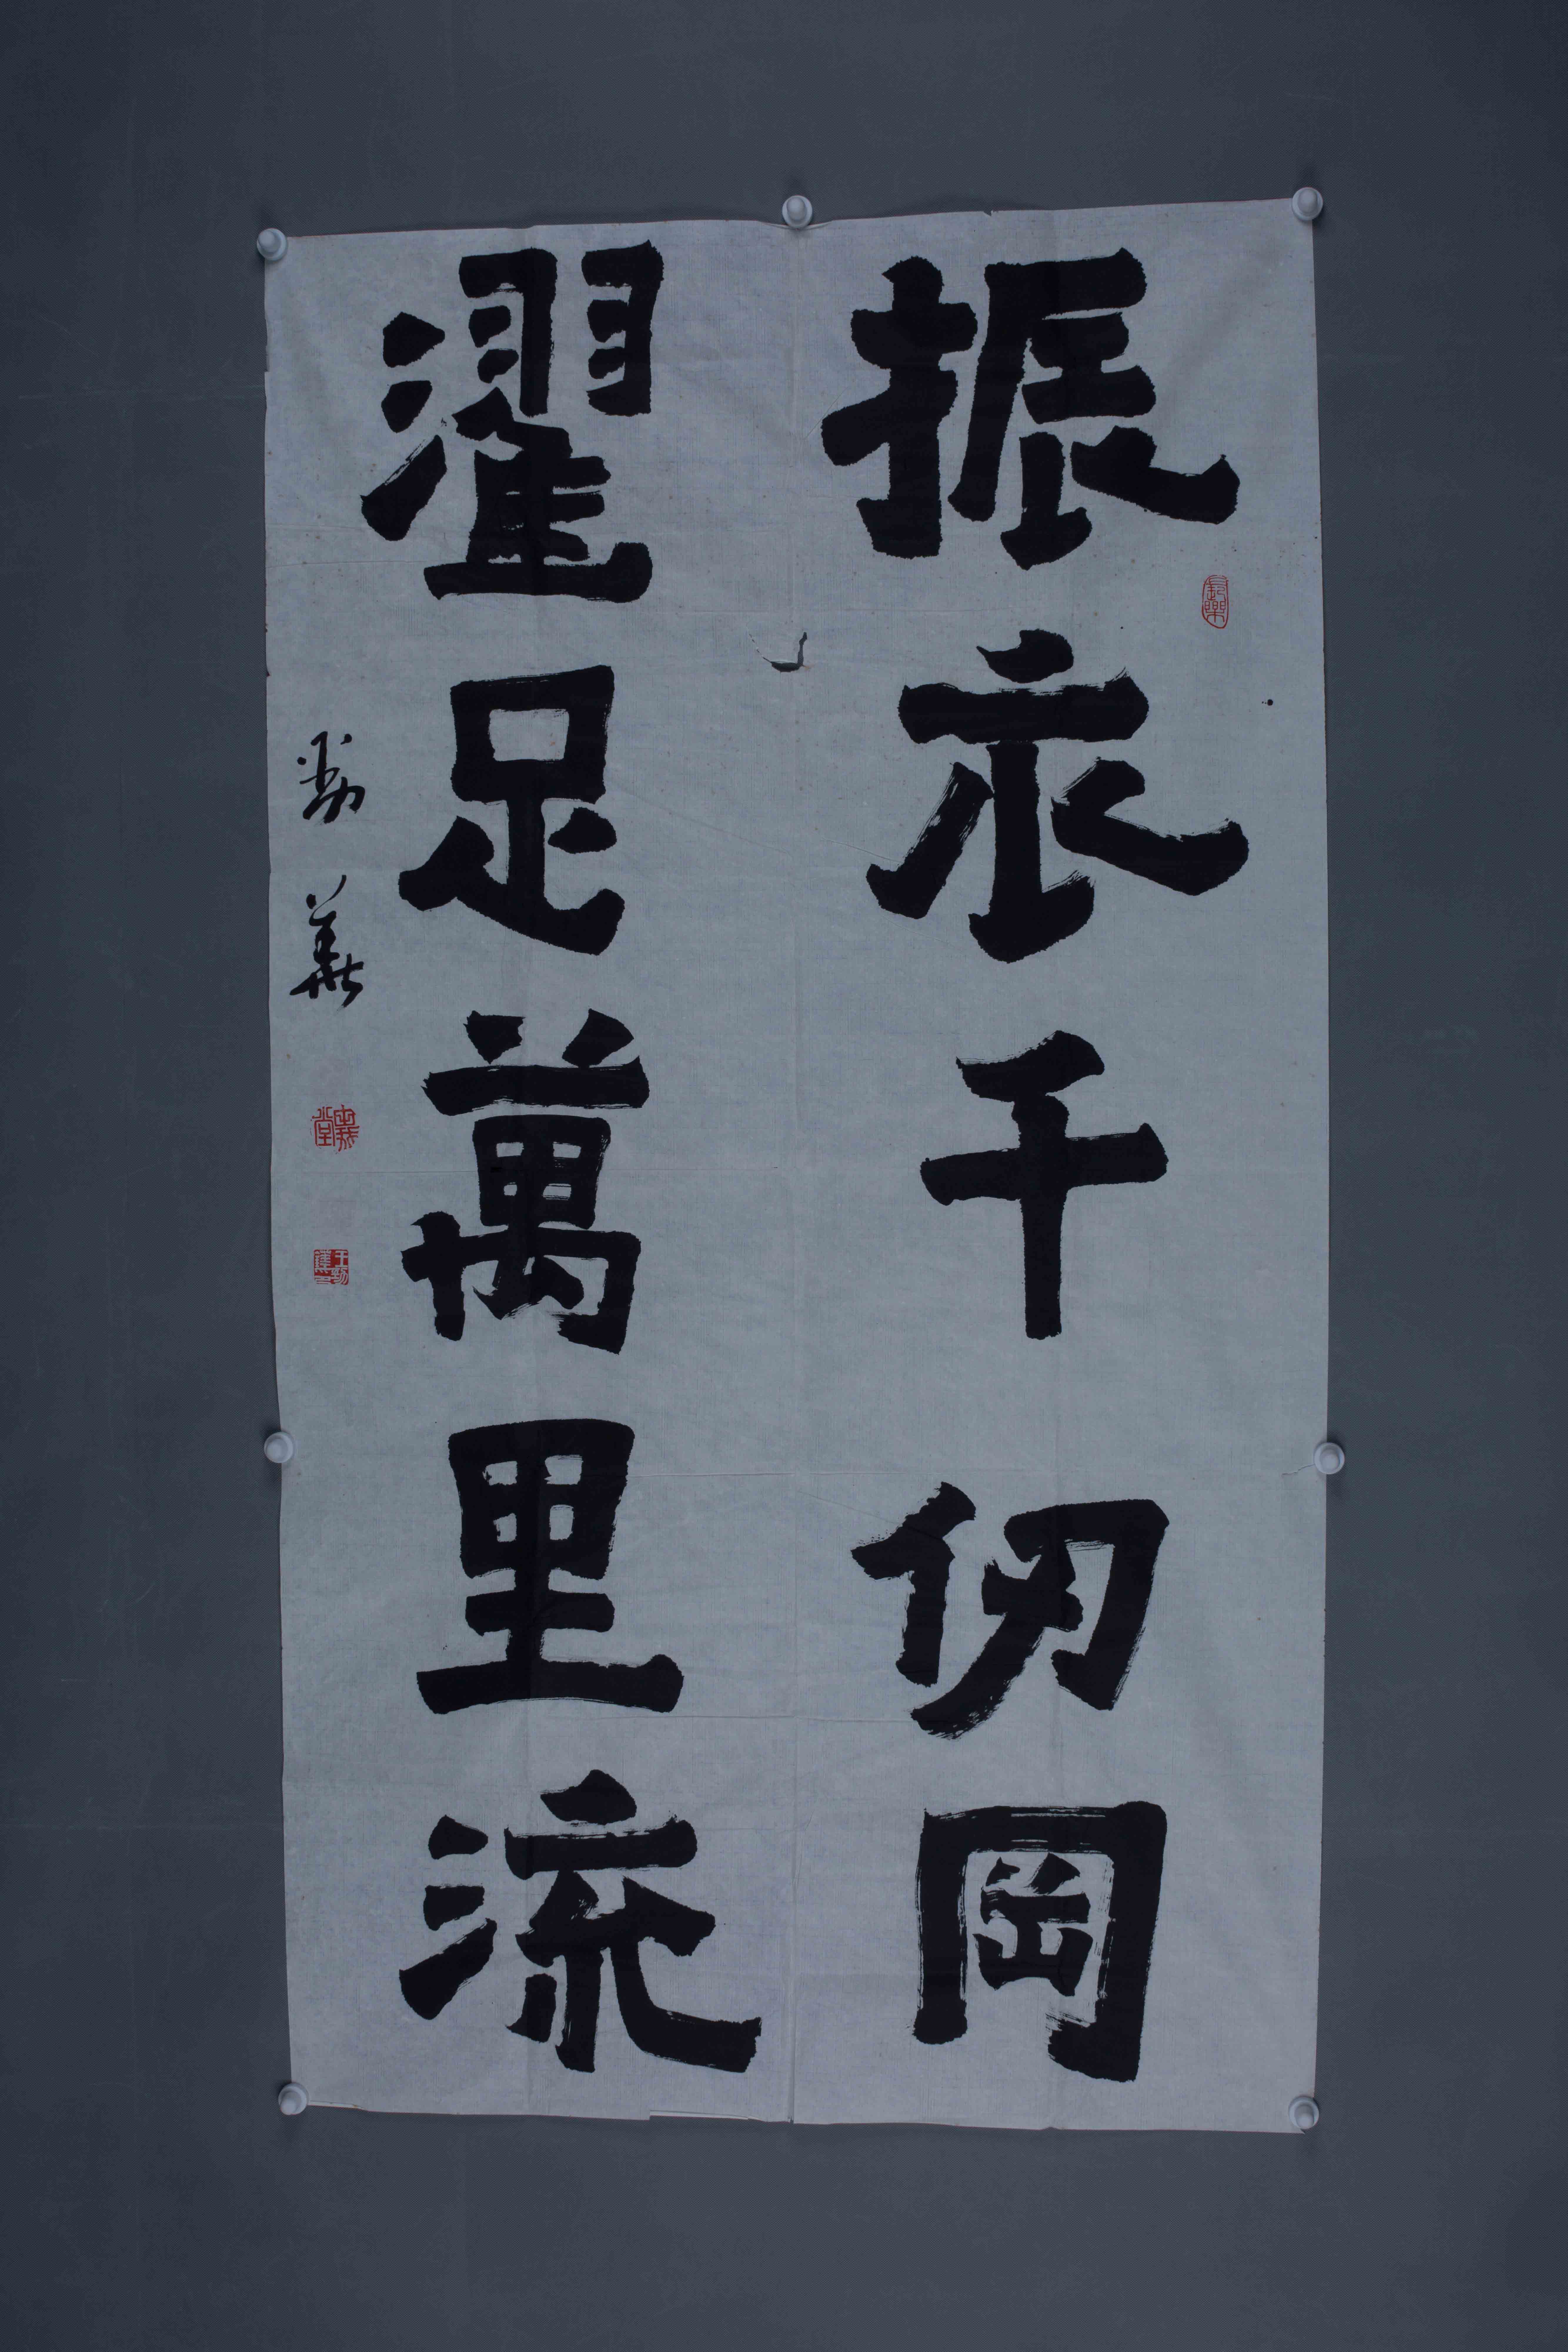 振衣千仞岡
濯足萬里流